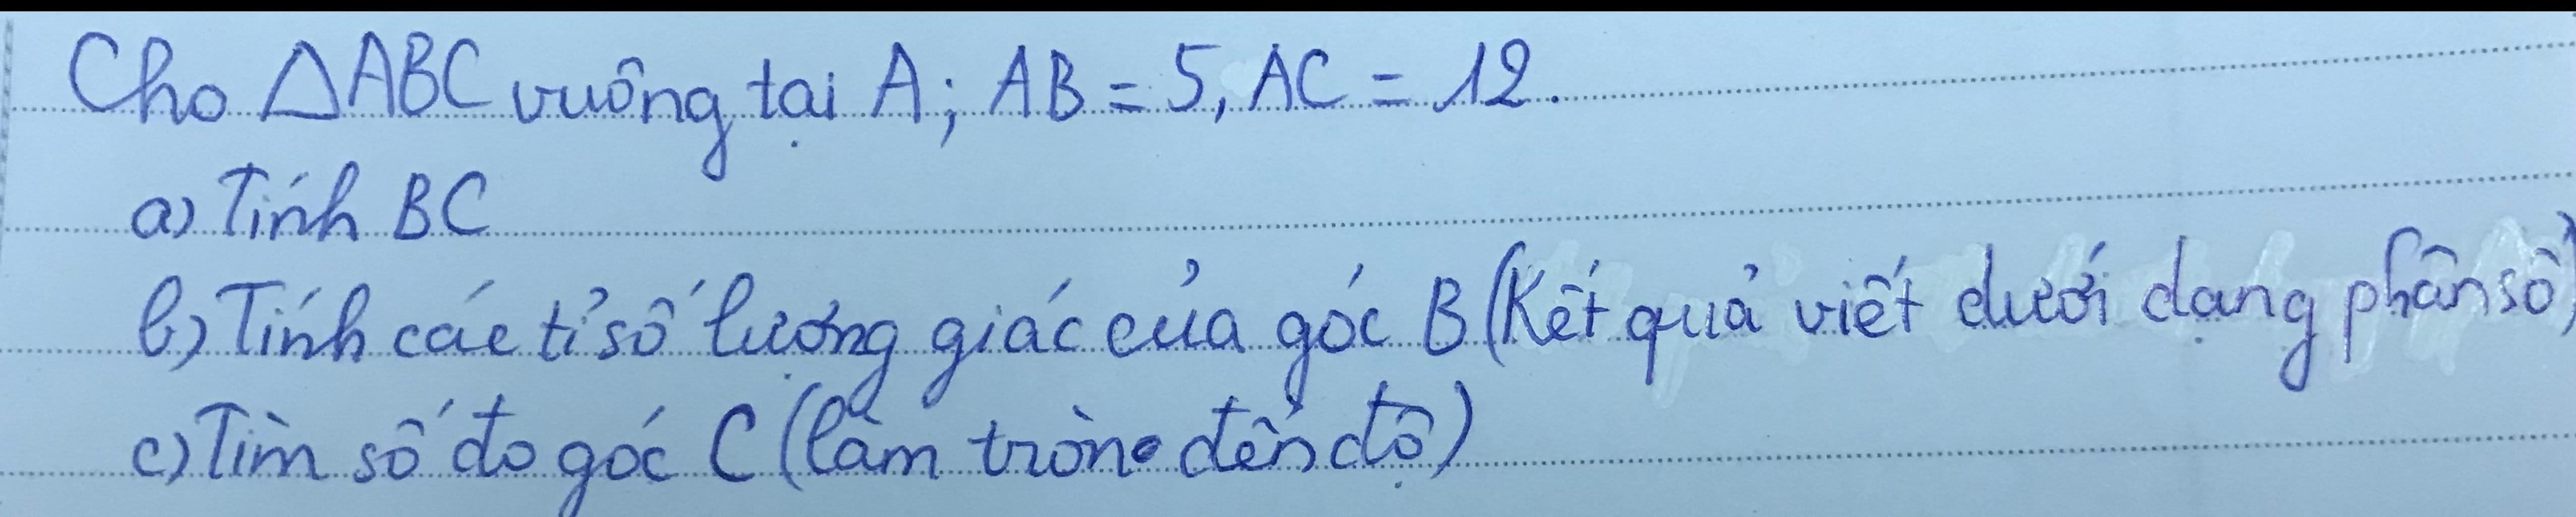 Cho △ABC vuông tại A; AB = 5, AC = 12.
a) Tính BC
b) Tính các tỉ số lượng giác của góc B (Kết quả viết dưới dạng phân số)
c) Tìm số đo góc C (làm tròn đến độ)